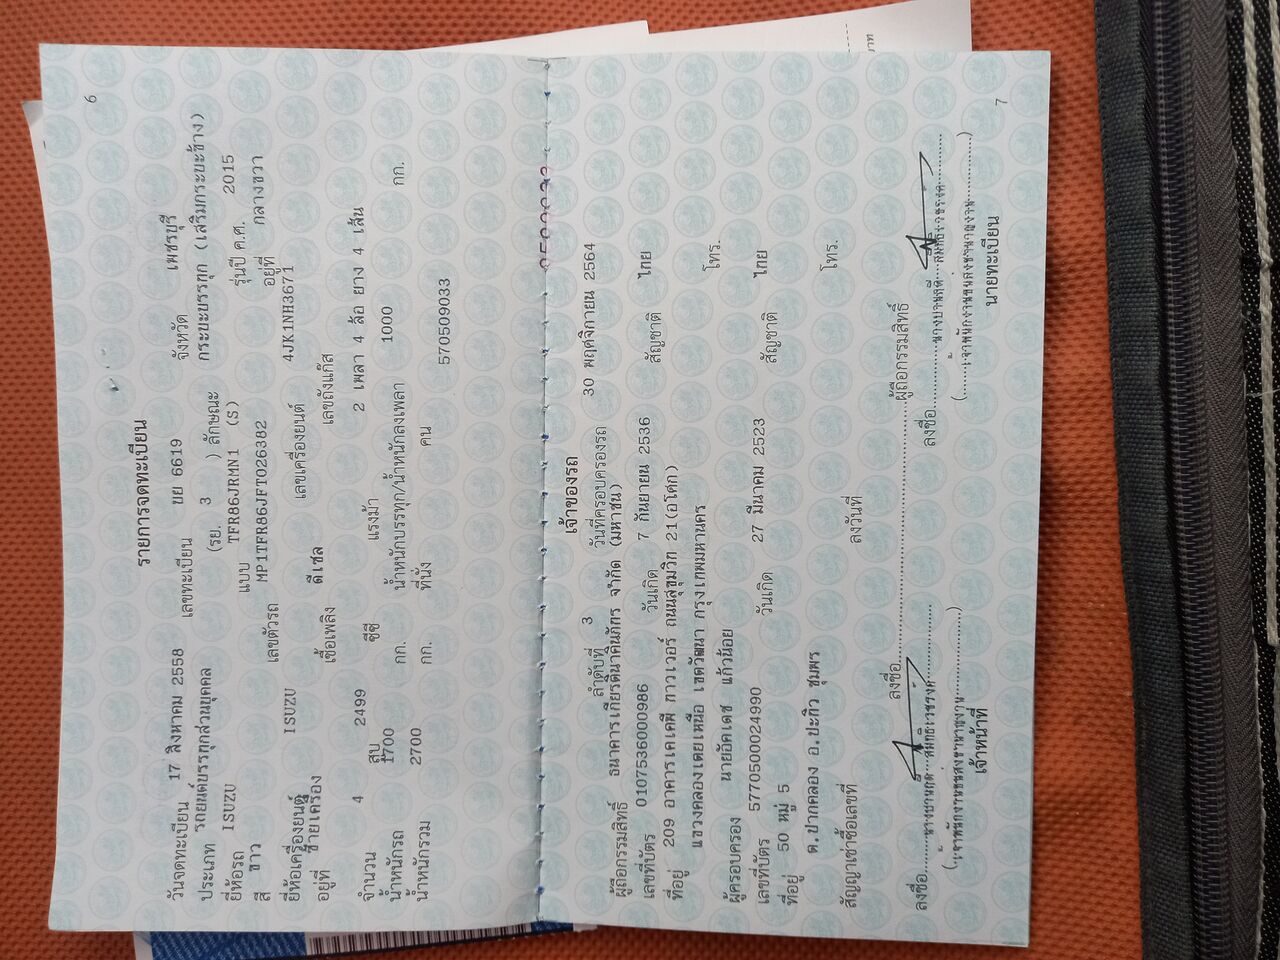 6
รายการจดทะเบียน
วันจดทะเบียน 17 สิงหาคม 2558 เลขทะเบียน ขย 6619 จังหวัด เพชรบุรี
ประเภท รถยนต์บรรทุกส่วนบุคคล (รย. 3 ) ลักษณะ กระบะบรรทุก (เสริมกระบะข้าง)
ยี่ห้อรถ ISUZU แบบ TFR86JRMN1 (S) รุ่นปี ค.ศ. 2015
สี ขาว เลขตัวรถ MP1TFR86JFT026382 อยู่ที่ กลางขวา
ยี่ห้อเครื่องยนต์ ISUZU เลขเครื่องยนต์ 4JK1NH3671
อยู่ที่ ซ้ายเครื่อง เชื้อเพลิง ดีเซล เลขถังแก๊ส
จำนวน 4 สูบ 2499 ซีซี แรงม้า 2 เพลา 4 ล้อ ยาง 4 เส้น
น้ำหนักรถ 1700 กก. น้ำหนักบรรทุก/น้ำหนักลงเพลา 1000 กก.
น้ำหนักรวม 2700 กก. ที่นั่ง คน 570509033
เจ้าของรถ
ลำดับที่ 3 วันที่ครอบครองรถ 30 พฤศจิกายน 2564
ผู้ถือกรรมสิทธิ์ ธนาคารเกียรตินาคินภัทร จำกัด (มหาชน)
เลขที่บัตร 0107536000986 วันเกิด 7 กันยายน 2536 สัญชาติ ไทย
ที่อยู่ 209 อาคารเคเคพี ทาวเวอร์ ถนนสุขุมวิท 21(อโศก)
แขวงคลองเตยเหนือ เขตวัฒนา กรุงเทพมหานคร โทร.
ผู้ครอบครอง นายอัคเดช แก้วน้อย
เลขที่บัตร 5770500024990 วันเกิด 27 มีนาคม 2523 สัญชาติ ไทย
ที่อยู่ 50 หมู่ 5
ต.ปากคลอง อ.ปะทิว ชุมพร โทร.
สัญญาเช่าซื้อเลขที่ ลงวันที่
ลงชื่อ ผู้ถือกรรมสิทธิ์
ลงชื่อ ลงชื่อ
เจ้าหน้าที่ นายทะเบียน
7